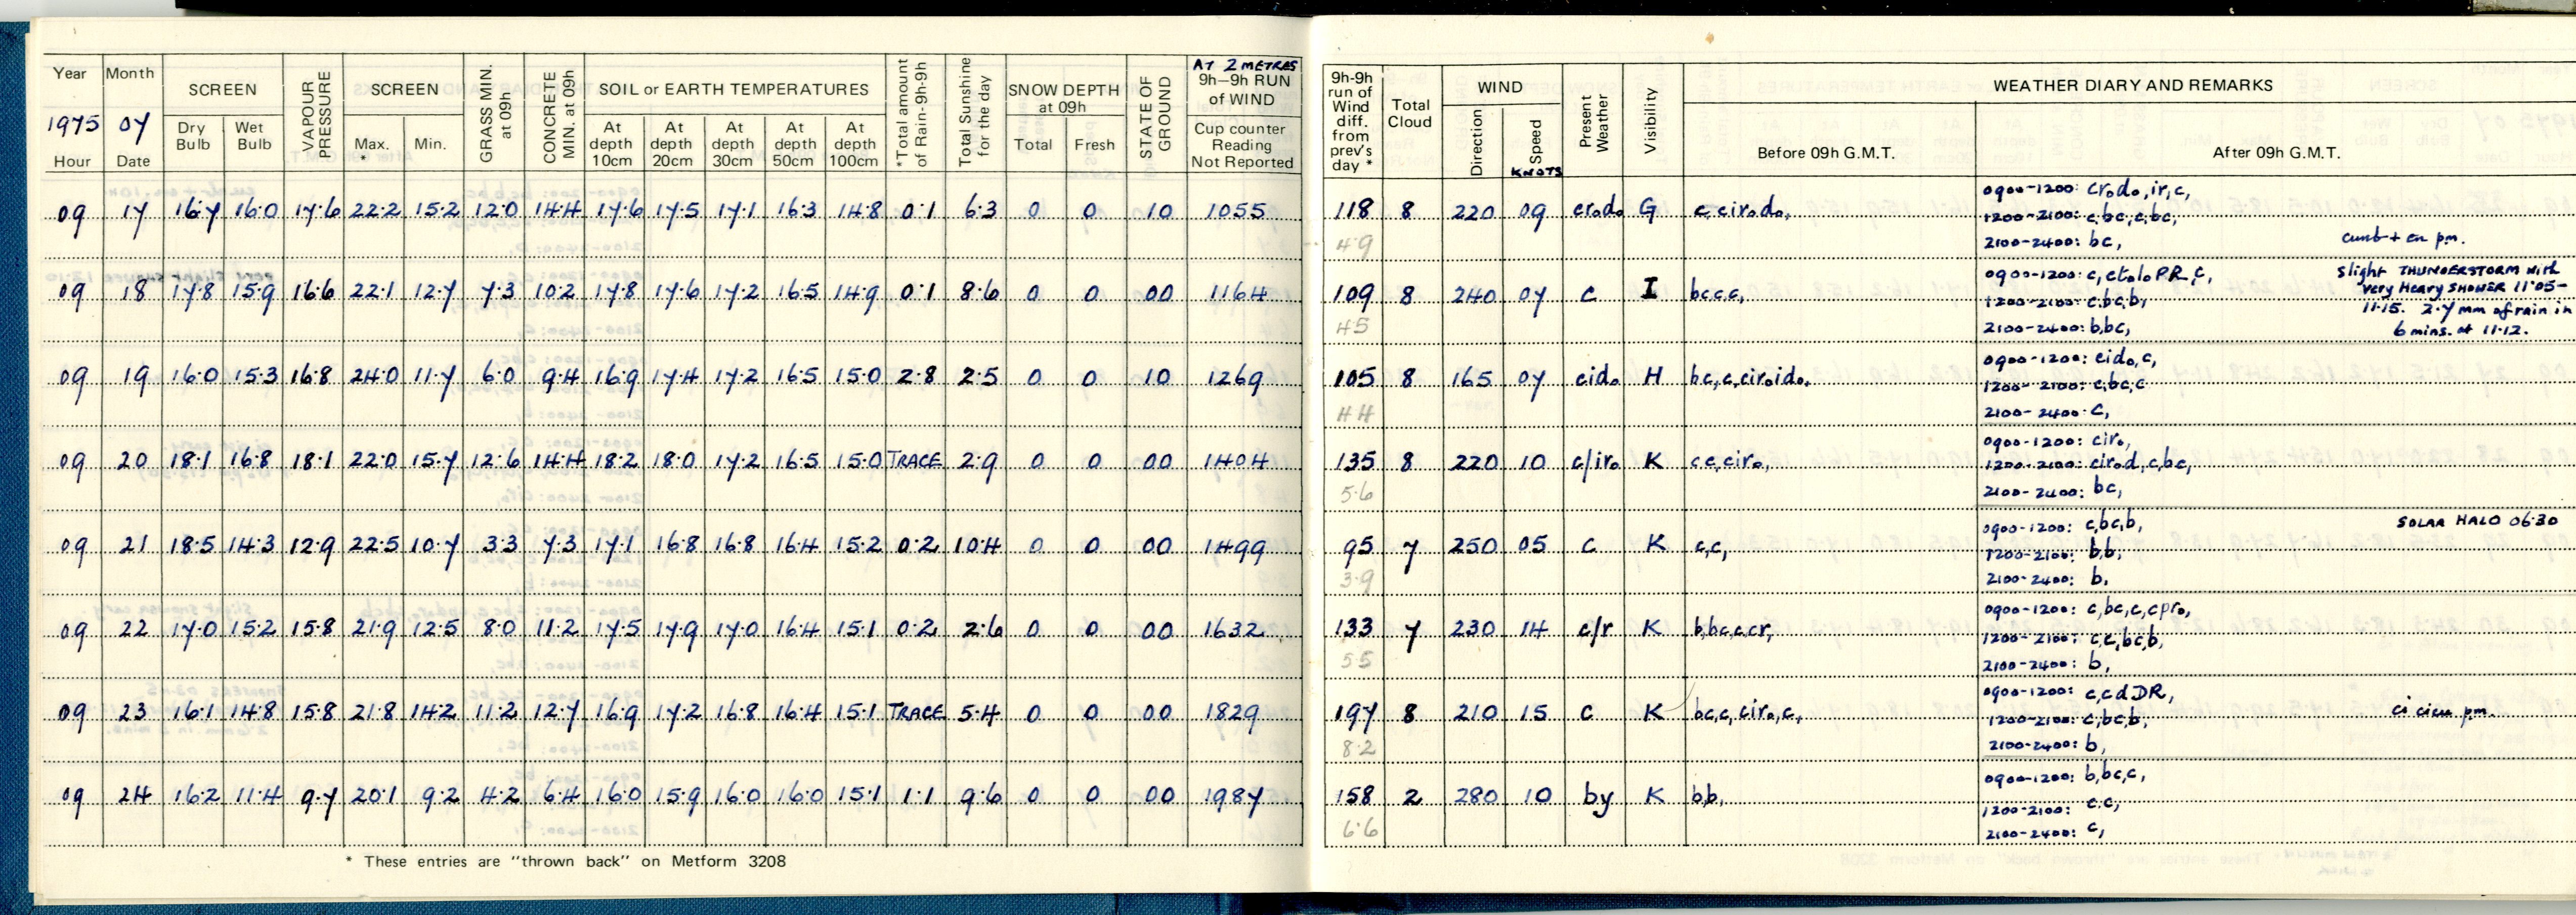 Year Month SCREEN VAPOUR PRESSURE SCREEN GRASS MIN. at 09h CONCRETE MIN. at 09h SOIL or EARTH TEMPERATURES *Total amount of Rain-9h-9h Total Sunshine for the day SNOW DEPTH at 09h STATE OF GROUND AT 2 METRES 9h-9h RUN of WIND
1975 07 Dry Bulb Wet Bulb Max. * Min. At depth 10cm At depth 20cm At depth 30cm At depth 50cm At depth 100cm Total Fresh Cup counter Reading Not Reported
Hour Date
09 17 16.7 16.0 17.6 22.2 15.2 12.0 14.4 17.6 17.5 17.1 16.3 14.8 0.1 6.3 0 0 10 1055
09 18 17.8 15.9 16.6 22.1 12.7 7.3 10.2 17.8 17.6 17.2 16.5 14.9 0.1 8.6 0 0 00 1164
09 19 16.0 15.3 16.8 24.0 11.7 6.0 9.4 16.9 17.4 17.2 16.5 15.0 2.8 2.5 0 0 10 1269
09 20 18.1 16.8 18.1 22.0 15.7 12.6 14.4 18.2 18.0 17.2 16.5 15.0 TRACE 2.9 0 0 00 1404
09 21 18.5 14.3 12.9 22.5 10.7 3.3 7.3 17.1 16.8 16.8 16.4 15.2 0.2 10.4 0 0 00 1499
09 22 17.0 15.2 15.8 21.9 12.5 8.0 11.2 17.5 17.9 17.0 16.4 15.1 0.2 2.6 0 0 00 1632
09 23 16.1 14.8 15.8 21.8 14.2 11.2 12.7 16.9 17.2 16.8 16.4 15.1 TRACE 5.4 0 0 00 1829
09 24 16.2 11.4 9.7 20.1 9.2 4.2 6.4 16.0 15.9 16.0 16.0 15.1 1.1 9.6 0 0 00 1987
* These entries are "thrown back" on Metform 3208
9h-9h run of Wind diff. from prev's day * Total Cloud WIND Present Weather Visibility WEATHER DIARY AND REMARKS
Direction Speed KNOTS Before 09h G.M.T. After 09h G.M.T.
0900-1200: cr₀d₀,ir,c,
118 8 220 09 cr₀d₀ G c,cir₀d₀, 1200-2100: c,bc,c,bc,
4.9 2100-2400: bc, cumb+ en pm.
0900-1200: c,ctalo PR,c, slight THUNDERSTORM with
109 8 240 07 c I bc,c,c, 1200-2100: c,bc,b, very Heavy SHOWER 11.05-
11.15. 2.7 mm of rain in
4.5 2100-2400: b,bc, 6 mins. at 11.12.
0900-1200: cid₀,c,
105 8 165 07 cid₀ H bc,c,cir₀id₀, 1200-2100: c,bc,c
4.4 2100-2400: c,
0900-1200: cir₀,
135 8 220 10 c/ir₀ K c,c,cir₀, 1200-2100: cir₀d,c,bc,
5.6 2100-2400: bc,
0900-1200: c,bc,b, SOLAR HALO 06.30
95 7 250 05 c K c,c, 1200-2100: b,b,
3.9 2100-2400: b,
0900-1200: c,bc,c,cpr₀,
133 7 230 14 c/r K b,bc,c,cr, 1200-2100: c,c,bc,b,
5.5 2100-2400: b,
0900-1200: c,cdDR,
197 8 210 15 c K bc,c,cir₀,c, 1200-2100: c,bc,b, ci cicu pm.
8.2 2100-2400: b,
0900-1200: b,bc,c,
158 2 280 10 by K b,b, 1200-2100: c,c,
6.6 2100-2400: c,